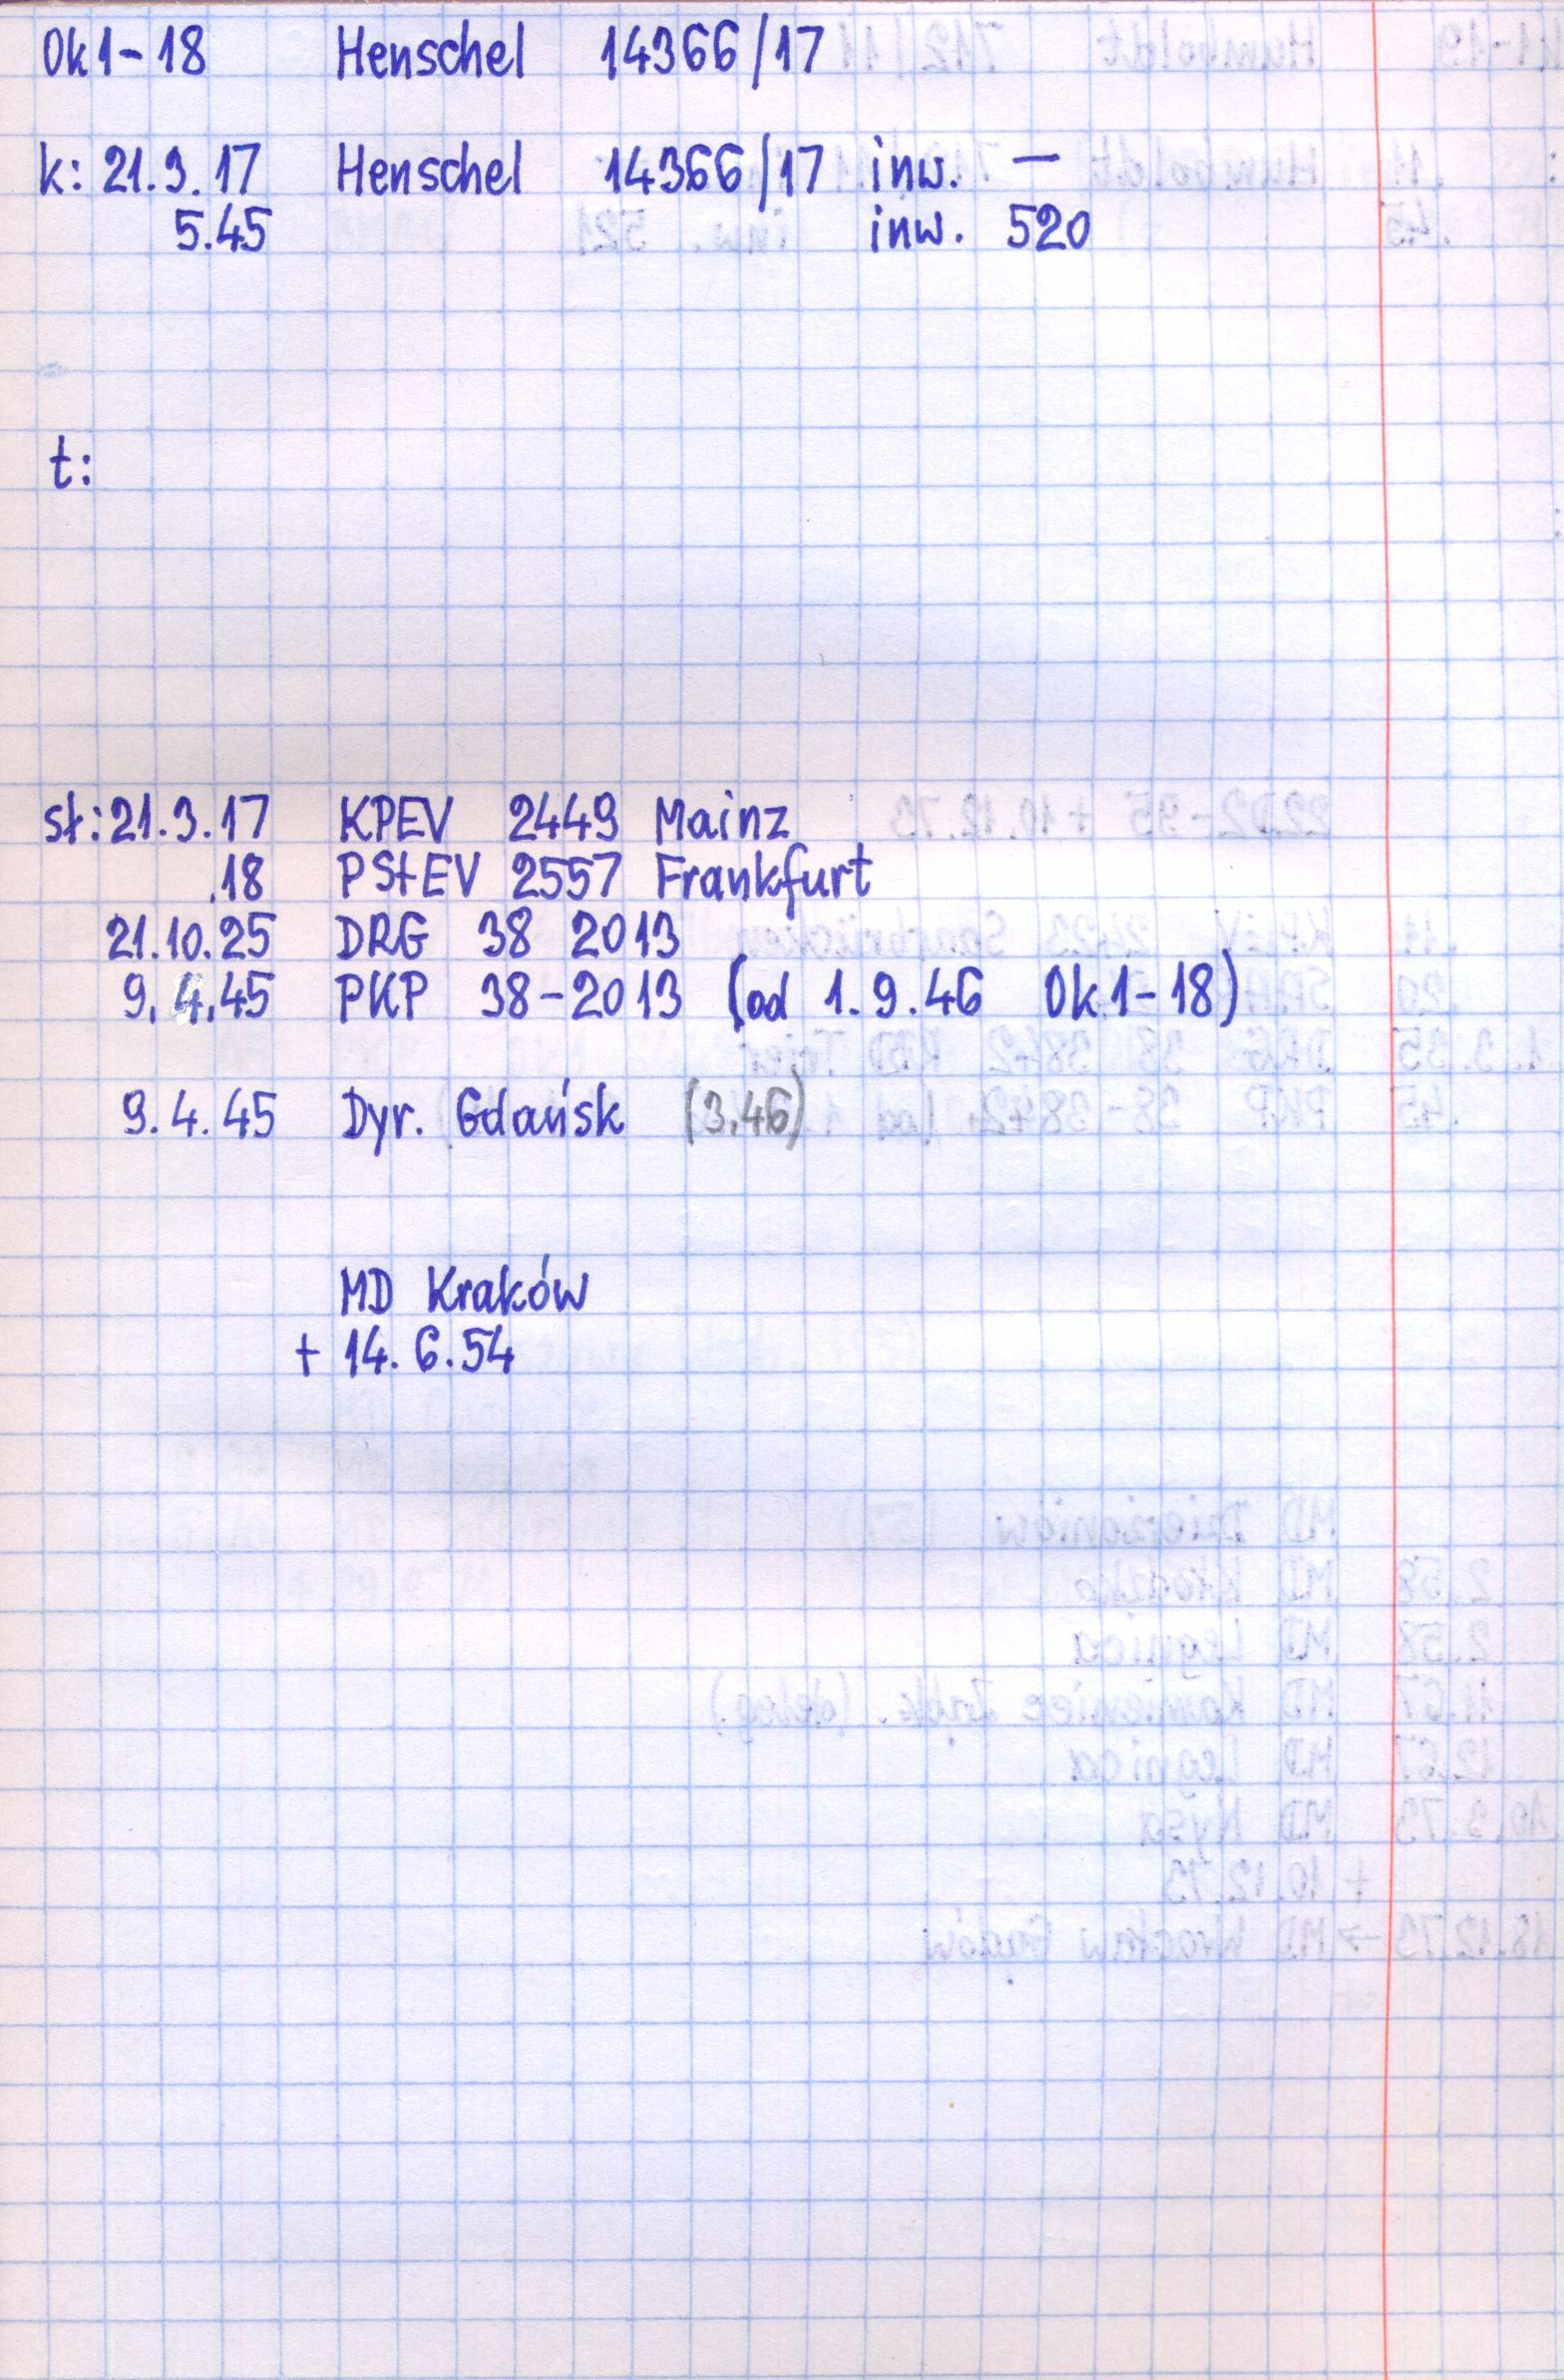 Ok1-18 Henschel 14366/17
k: 21.3.17 Henschel 14366/17 inw. —
5.45 inw. 520
t:
st: 21.3.17 KPEV 2449 Mainz
.18 PStEV 2557 Frankfurt
21.10.25 DRG 38 2013
9.4.45 PKP 38-2013 (od 1.9.46 Ok1-18)
9.4.45 Dyr. Gdańsk (3.46)
MD Kraków
+ 14.6.54